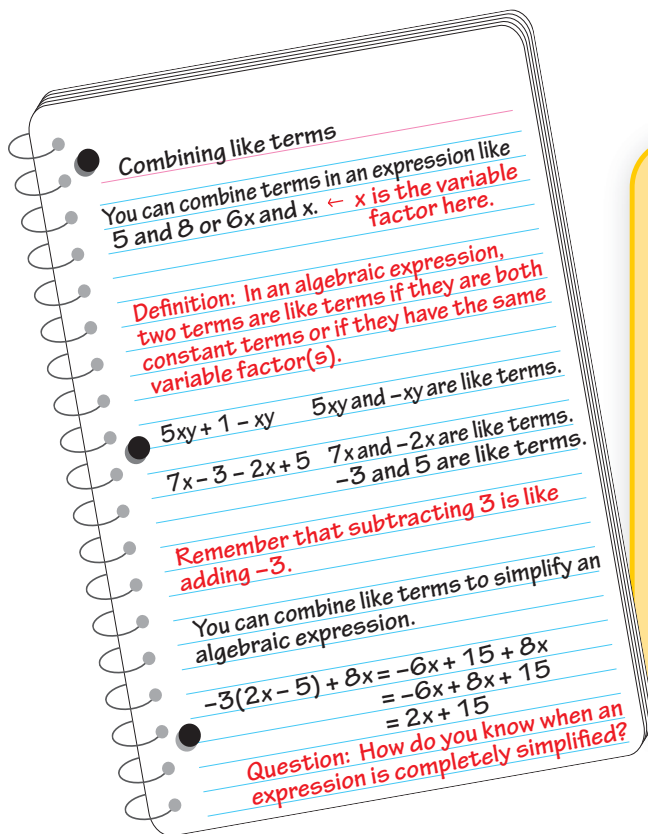 Combining like terms
You can combine terms in an expression like
5 and 8 or 6x and x. ← x is the variable
factor here.
Definition: In an algebraic expression,
two terms are like terms if they are both
constant terms or if they have the same
variable factor(s).
5xy + 1 – xy 5xy and –xy are like terms.
7x – 3 – 2x + 5 7x and –2x are like terms.
–3 and 5 are like terms.
Remember that subtracting 3 is like
adding –3.
You can combine like terms to simplify an
algebraic expression.
–3(2x – 5) + 8x = –6x + 15 + 8x
= –6x + 8x + 15
= 2x + 15
Question: How do you know when an
expression is completely simplified?